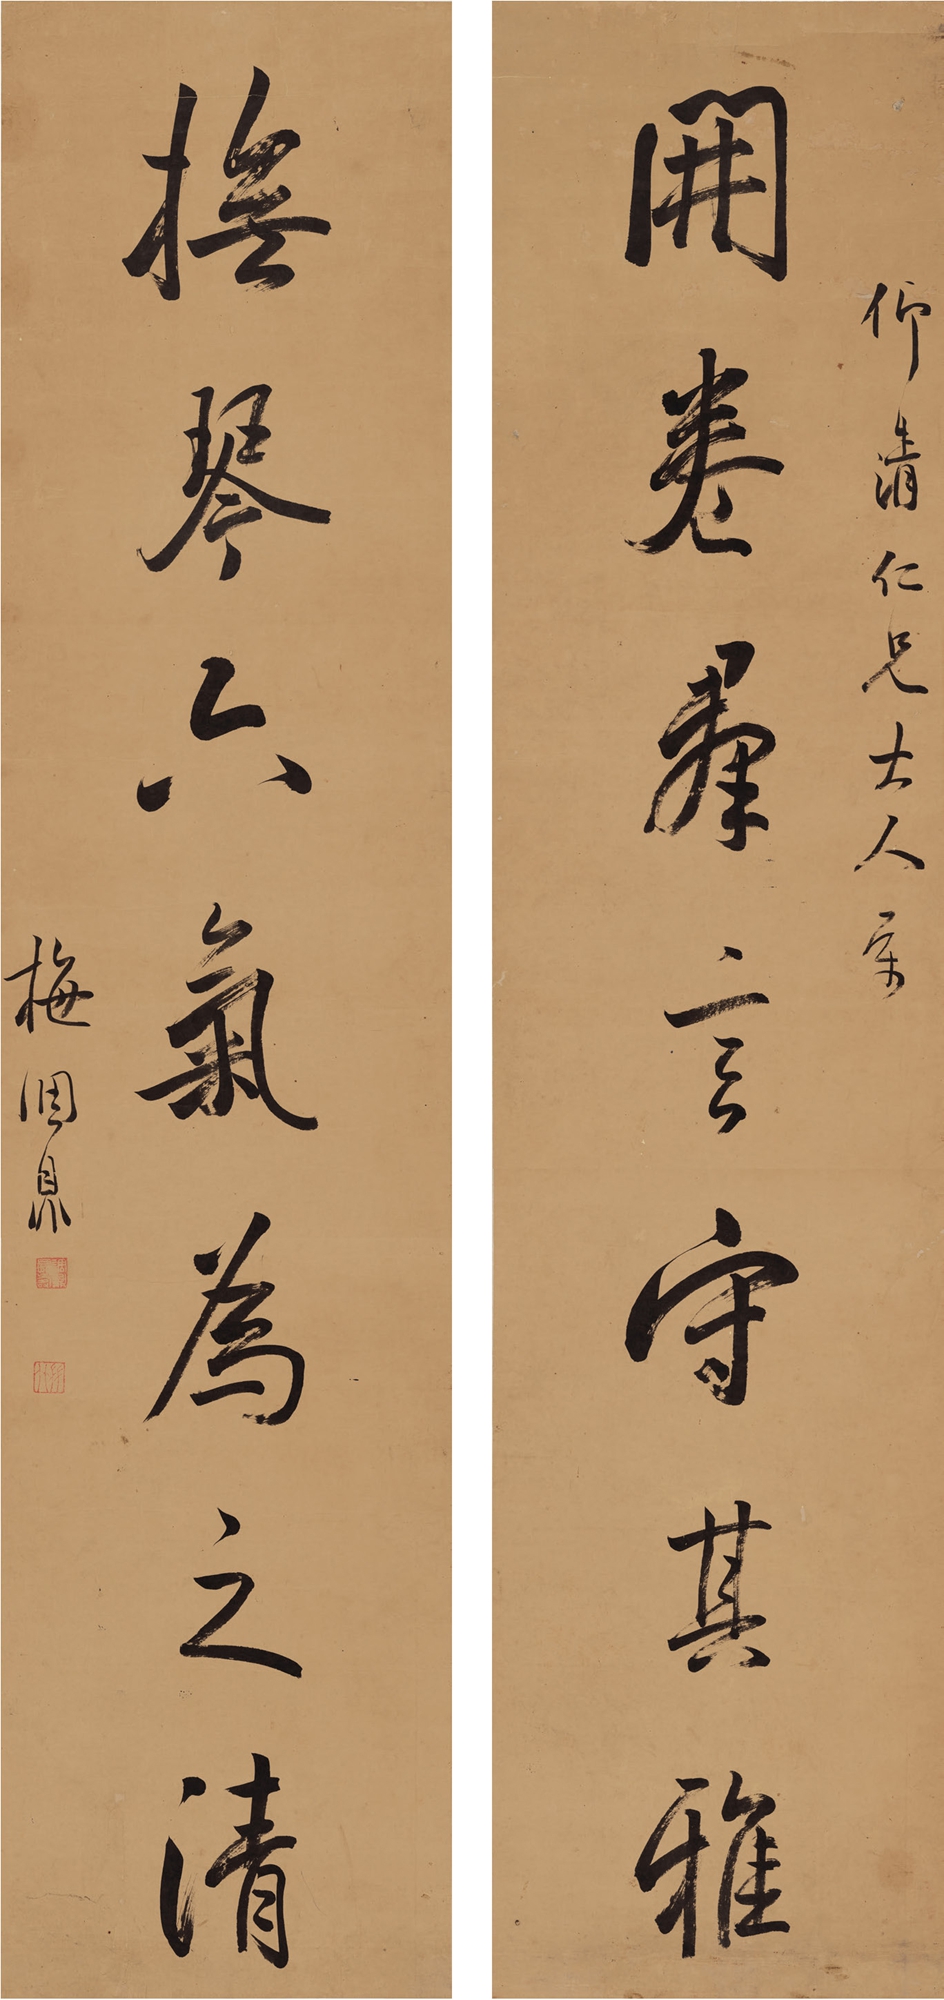 仰清仁兄大人属
開卷羣言守其雅
撫琴六氣為之清
梅調鼎